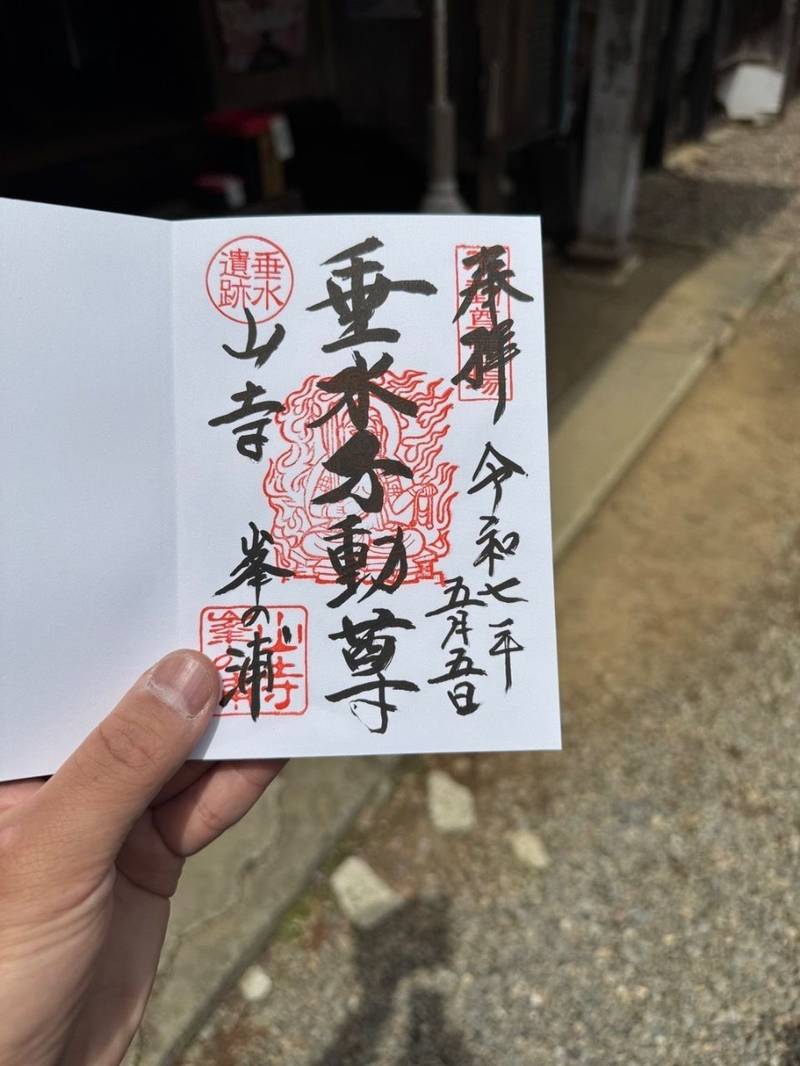 奉拝 令和七年
五月五日
垂水不動尊
山寺 峯の浦
垂水
遺跡
山寺
峯の浦